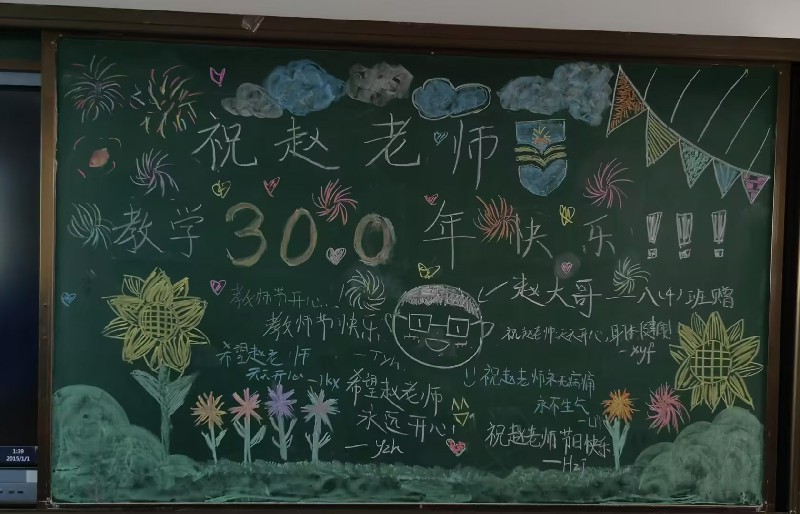 祝赵老师
教学300年快乐!!!
教师节开心..!
教师节快乐
赵大哥——八(4)班赠
祝赵老师天天开心,身体健康
-xyf
希望赵老师
天天开心-jkx
希望赵老师
永远开心!
—yzh
祝赵老师永无病痛
永不生气
祝赵老师节日快乐
—Hzj
1:39
2015/1/1